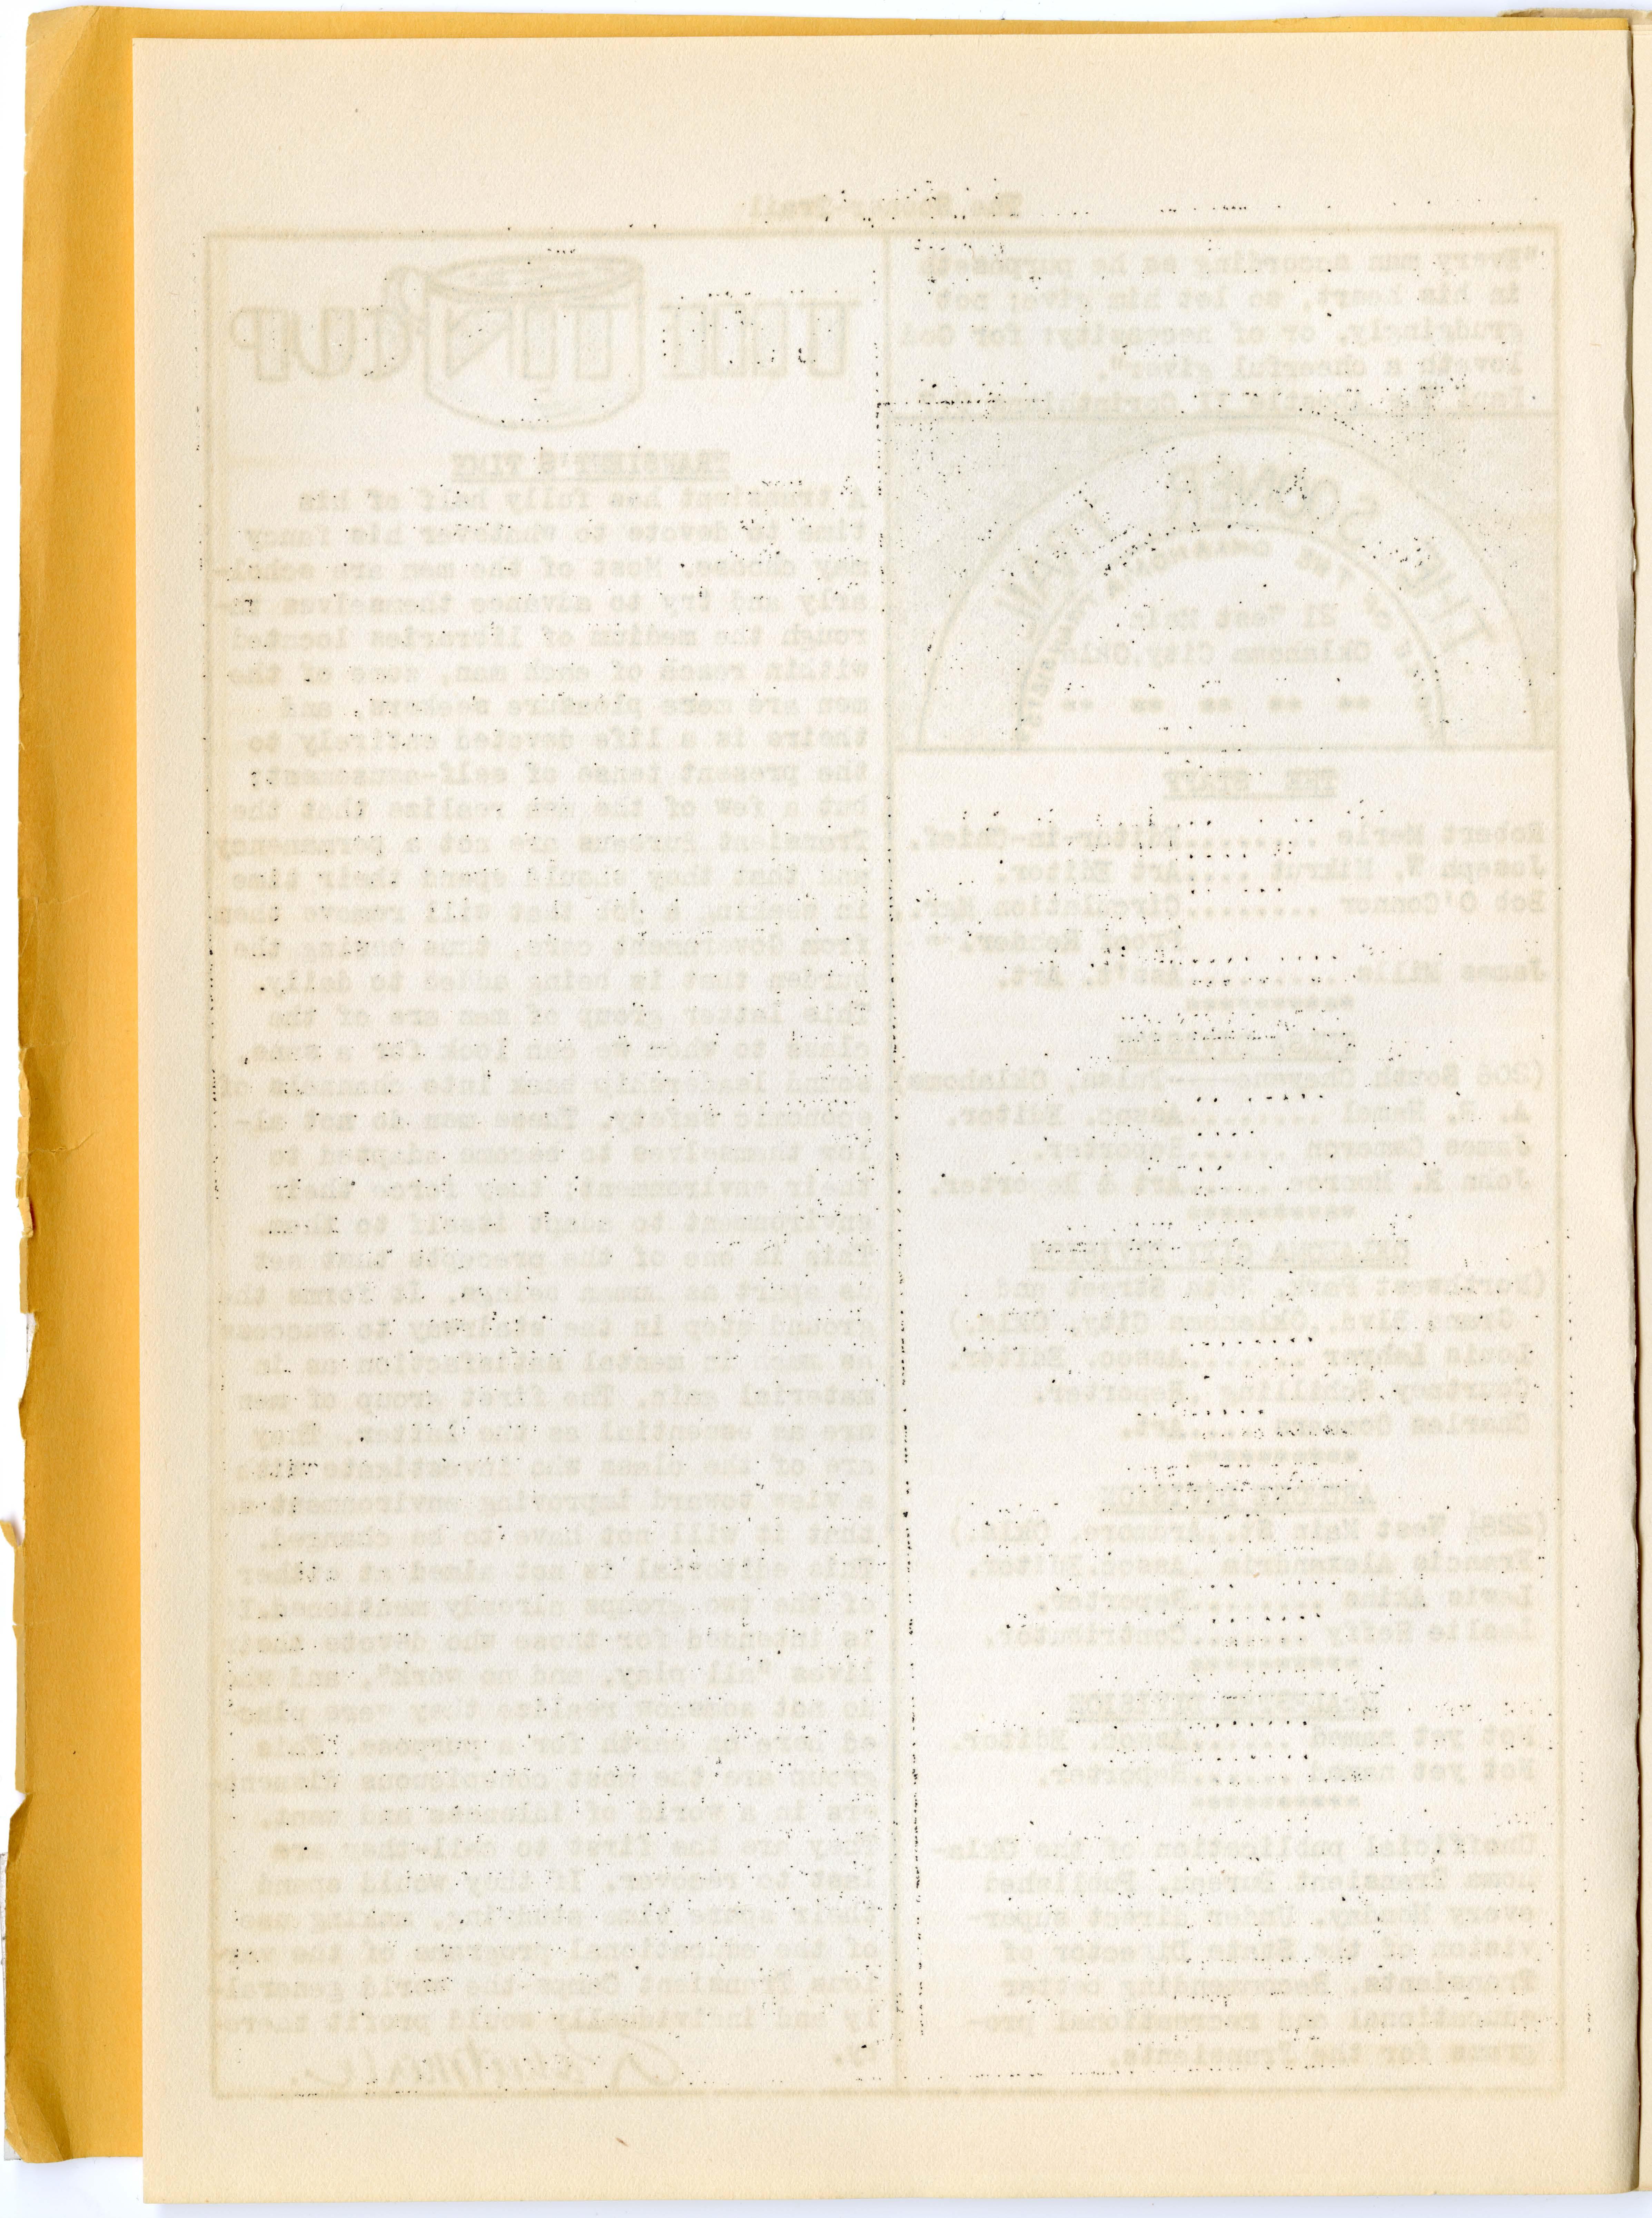 The Sooner Trail
"Every man according as he purposeth
in his heart, so let him give; not
grudgingly, or of necessity: for God
loveth a cheerful giver".
SOONER
THE
21 West Main
Oklahoma City, Okla.
** ** ** ** **
THE STAFF
Robert Merle ........Editor-in-Chief.
Joseph W. Mikrut ....Art Editor.
Bob O'Connor ........Circulation Mgr.,
Proof Reader.
James Mills ..........Ass't. Art.
**********
TULSA DIVISION
(206 South Cheyenne----Tulsa, Oklahoma)
Hamel ........Assoc. Editor.
James Cameron ......Reporter.
John R. Monroe .....Art & Reporter.
**********
OKLAHOMA CITY DIVISION
(Northwest Park, 36th Street and
Grand Blvd., Oklahoma City, Okla.)
Louis Lehrer .......Assoc. Editor.
Courtney Schilling .Reporter.
Charles Conners .....Art.
**********
ARDMORE DIVISION
(228½ West Main St., Ardmore, Okla.)
Francis Alexandria .Assoc. Editor.
Lewis Akins ........Reporter.
Leslie Hefty .......Contributor.
**********
McALESTER DIVISION
Not yet named ......Assoc. Editor.
Not yet named ......Reporter.
**********
Unofficial publication of the Okla-
homa Transient Bureau. Published
every Monday. Under direct super-
vision of the State Director of
Transients. Recommending better
educational and recreational pro-
grams for the Transients.
THE TIN CUP
TRANSIENT'S TIME
A transient has fully half of his
time to devote to whatever his fancy
may choose. Most of the men are schol-
arly and try to advance themselves th-
rough the medium of libraries located
within reach of each man, some of the
men are mere pleasure seekers, and
theirs is a life devoted entirely to
the present tense of self-amusement;
but a few of the men realize that the
Transient Bureaus are not a permanency
and that they should spend their time
in seeking a job that will remove them
from Government care, thus easing the
burden that is being added to daily.
This latter group of men are of the
class to whom we can look for a sane,
sound leadership back into channels of
economic safety. These men do not al-
low themselves to become adapted to
their environment; they force their
environment to adapt itself to them.
This is one of the precepts that set
us apart as human beings. It forms the
ground step in the stairway to success
as much in mental satisfaction as in
material gain. The first group of men
are as essential as the latter. They
are of the class who investigate with
a view toward improving environment so
that it will not have to be changed.
This editorial is not aimed at either
of the two groups already mentioned. It
is intended for those who devote their
lives "all play, and no work", and who
do not somehow realize they were plac-
ed here on earth for a purpose. This
group are the most conspicuous
ers in a world of idleness and want.
They are the first to
last to recover. If they would spend
their spare time studying, making use
of the educational programs of the var-
ious Transient Camps the world general-
ly and individually would profit there-
by.